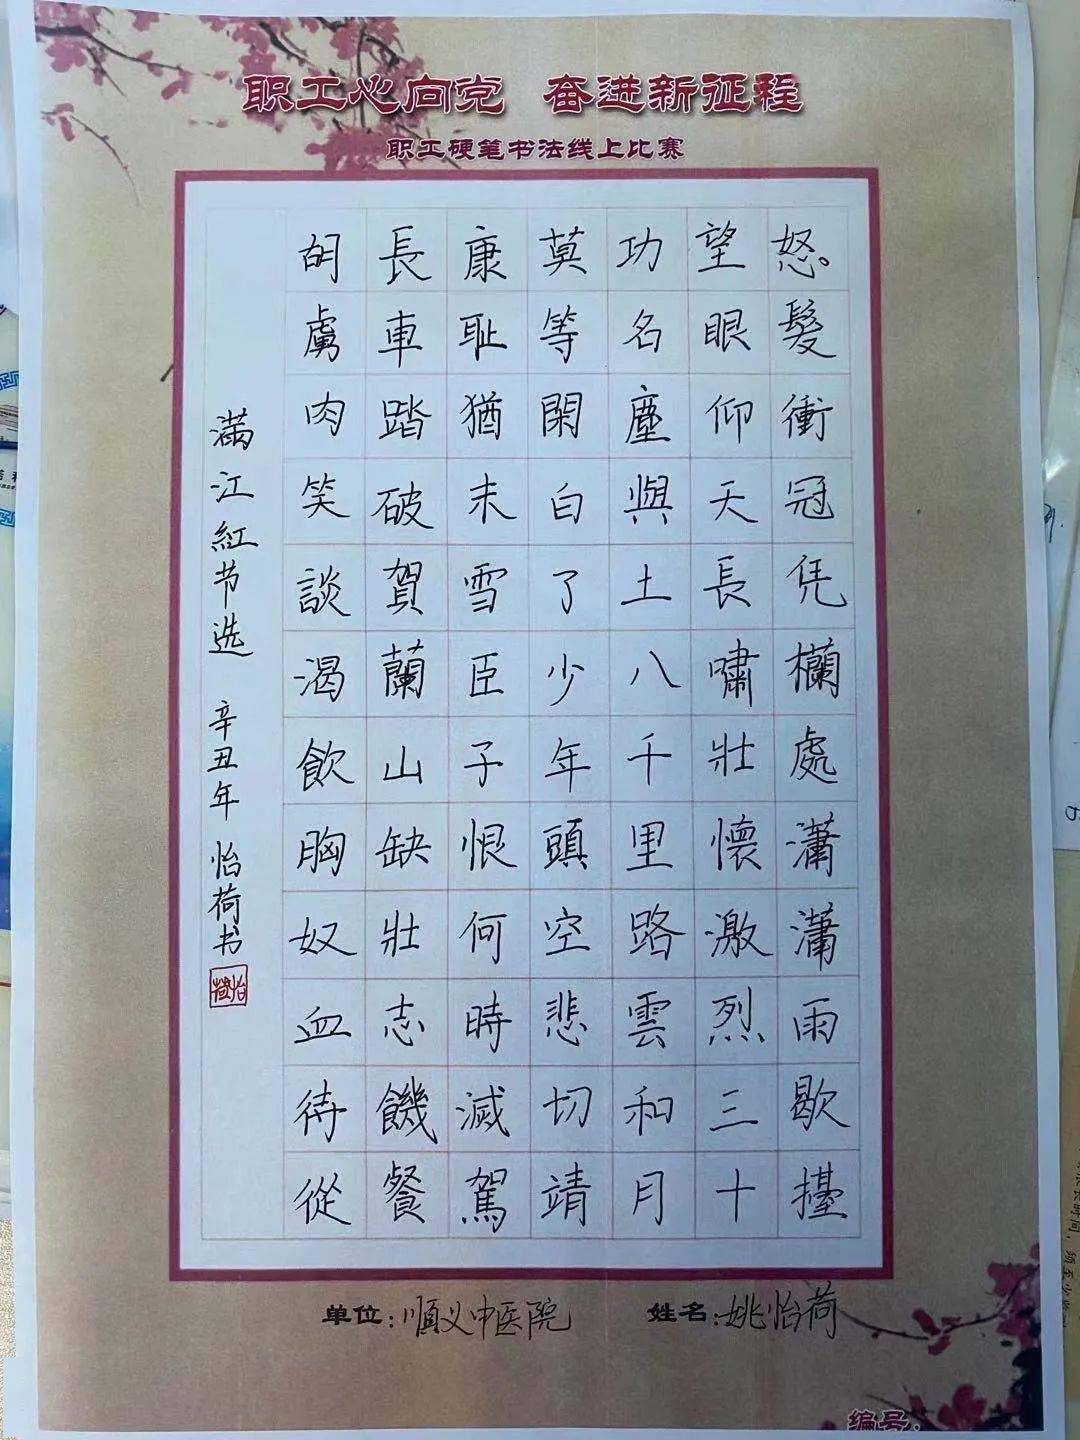 职工心向党 奋进新征程
职工硬笔书法线上比赛
怒髮衝冠凭欄處瀟瀟雨歇擡
望眼仰天長嘯壯懷激烈三十
功名塵與土八千里路雲和月
莫等閑白了少年頭空悲切靖
康耻猶未雪臣子恨何時滅駕
長車踏破賀蘭山缺壯志饑餐
胡虜肉笑談渴飲胸奴血待從
滿江紅节选 辛丑年 怡荷书
怡荷
单位:順义中医院 姓名:姚怡荷
编号: